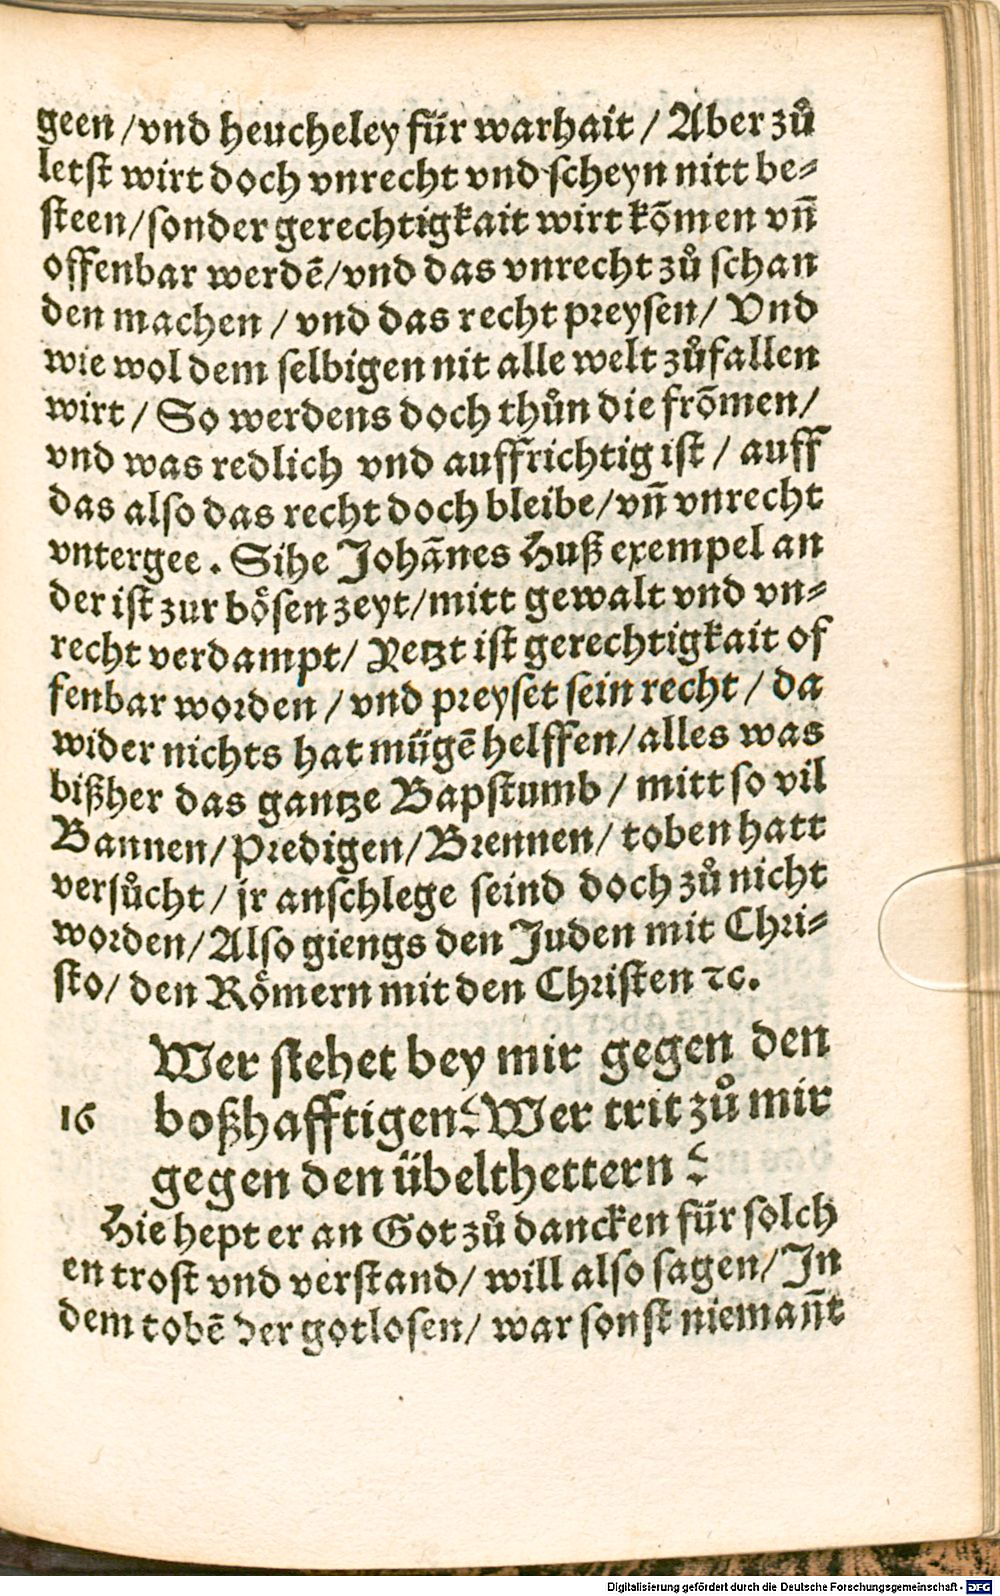 geen /vnd heucheley für warhait / Aber zů
letst wirt doch vnrecht vnd scheyn nitt be⸗
steen/sonder gerechtigkait wirt kom̃en vñ
offenbar werdẽ/vnd das vnrecht zů schan
den machen / vnd das recht preysen/ Vnd
wie wol dem selbigen nit alle welt zůfallen
wirt / So werdens doch thůn die from̃en/
vnd was redlich vnd auffrichtig ist / auff
das also das recht doch bleibe/vñ vnrecht
vntergee . Sihe Johãnes Huß exempel an
der ist zur bösen zeyt/mitt gewalt vnd vn⸗
recht verdampt/ Yetzt ist gerechtigkait of
fenbar worden / vnd preyset sein recht / da
wider nichts hat mügẽ helffen/alles was
bißher das gantze Bapstumb / mitt so vil
Bannen/Predigen/Brennen/ toben hatt
versůcht / jr anschlege seind doch zů nicht
worden/Also giengs den Juden mit Chri⸗
sto/ den Römern mit den Christen ⁊c.
Wer stehet bey mir gegen den
16 boßhafftigen? Wer trit zů mir
gegen den übelthettern ?
Hie hept er an Got zů dancken für solch
en trost vnd verstand/ will also sagen/In
dem tobẽ der gotlosen/ war sonst niemañt
Digitalisierung gefördert durch die Deutsche Forschungsgemeinschaft - DFG